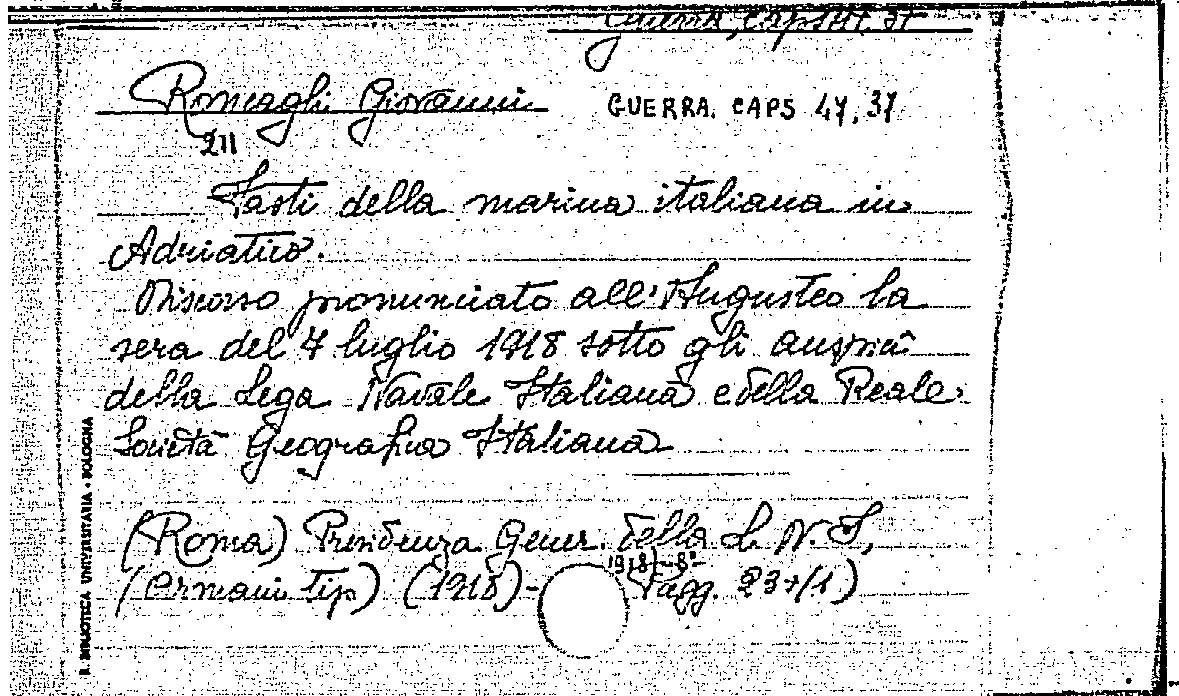 Guerra, Caps
Roncagli Giovanni
GUERRA. CAPS 47, 37
211
Fasti della marina italiana in
Adriatico.
Discorso pronunciato all'Augusteo la
sera del 4 luglio 1918 sotto gli auspici
della Lega Navale Italiana e della Reale
Società Geografica Italiana
(Roma) Presidenza Gener. della L. N. I,
1918)-8°
(Ormani tip) (1918)- Pagg. 23+/1)
R. BIBLIOTECA UNIVERSITARIA • BOLOGNA